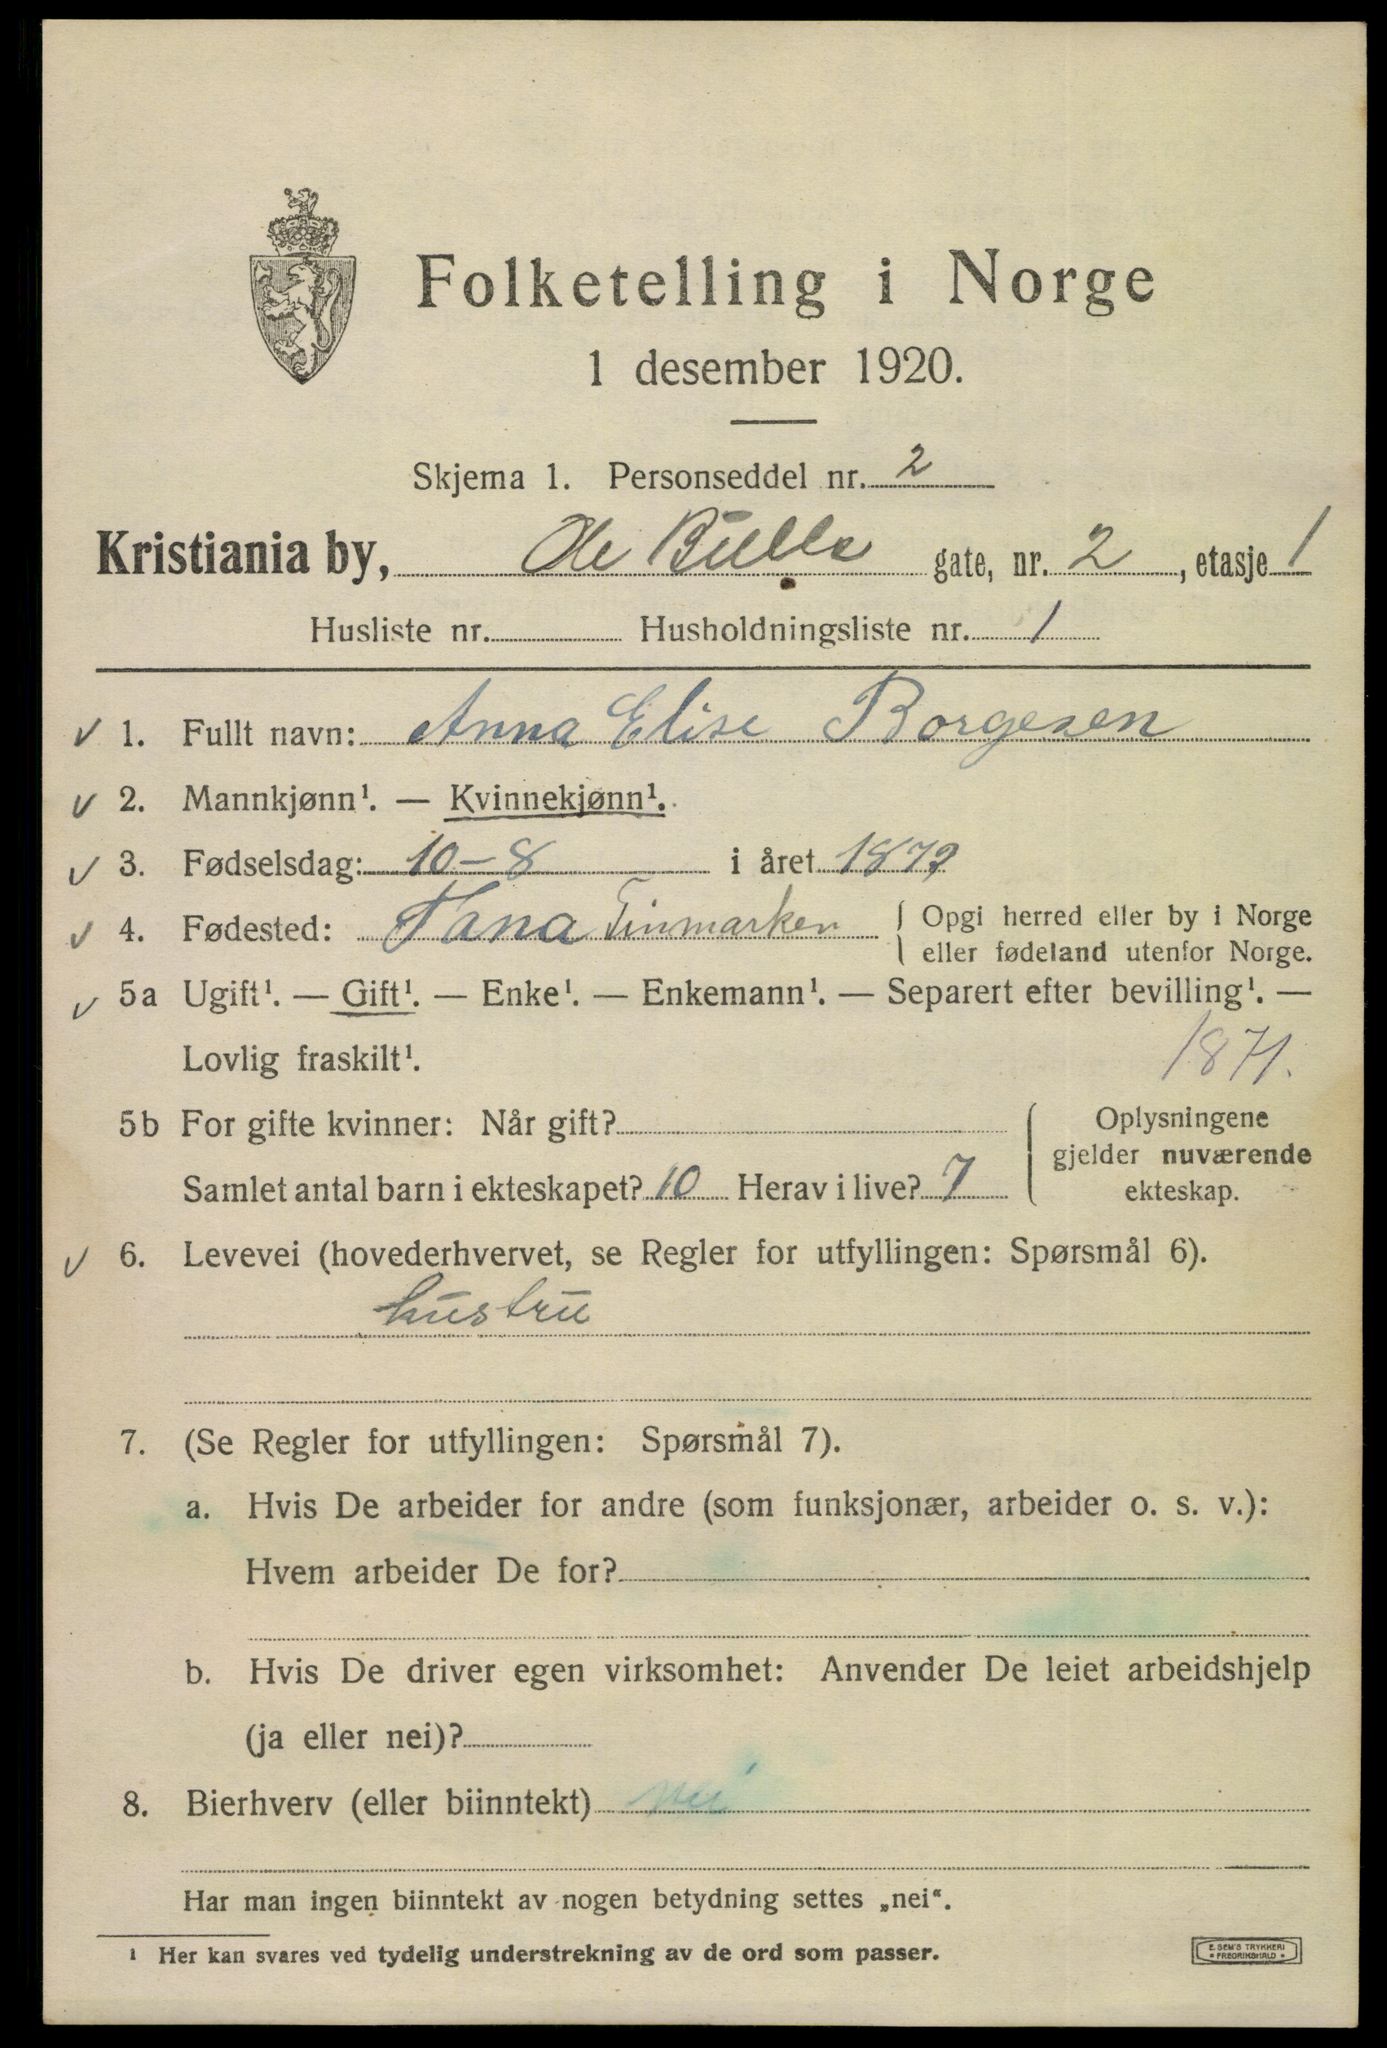 Folketelling i Norge
1 desember 1920.
Skjema 1. Personseddel nr. 2
Kristiania by, Ole Bulls gate, nr. 2, etasje 1
Husliste nr. Husholdningsliste nr. 1
✓ 1. Fullt navn: Anna Elise Borgesen
✓ 2. Mannkjønn¹. — Kvinnekjønn¹.
✓ 3. Fødselsdag: 10-8 i året 1879
✓ 4. Fødested: Tana Finmarken { Opgi herred eller by i Norge
eller fødeland utenfor Norge.
✓ 5a Ugift¹. — Gift¹. — Enke¹. — Enkemann¹. — Separert efter bevilling¹. —
Lovlig fraskilt¹. 1871.
5b For gifte kvinner: Når gift?
Samlet antal barn i ekteskapet? 10 Herav i live? 7
{ Oplysningene
gjelder nuværende
ekteskap.
✓ 6. Levevei (hovederhvervet, se Regler for utfyllingen: Spørsmål 6).
hustru
7. (Se Regler for utfyllingen: Spørsmål 7).
a. Hvis De arbeider for andre (som funksjonær, arbeider o. s. v.):
Hvem arbeider De for?
b. Hvis De driver egen virksomhet: Anvender De leiet arbeidshjelp
(ja eller nei)?
8. Bierhverv (eller biinntekt) nei
Har man ingen biinntekt av nogen betydning settes „nei“.
¹ Her kan svares ved tydelig understrekning av de ord som passer.
E. SEM'S TRYKKERI
* FREDRIKSHALD *